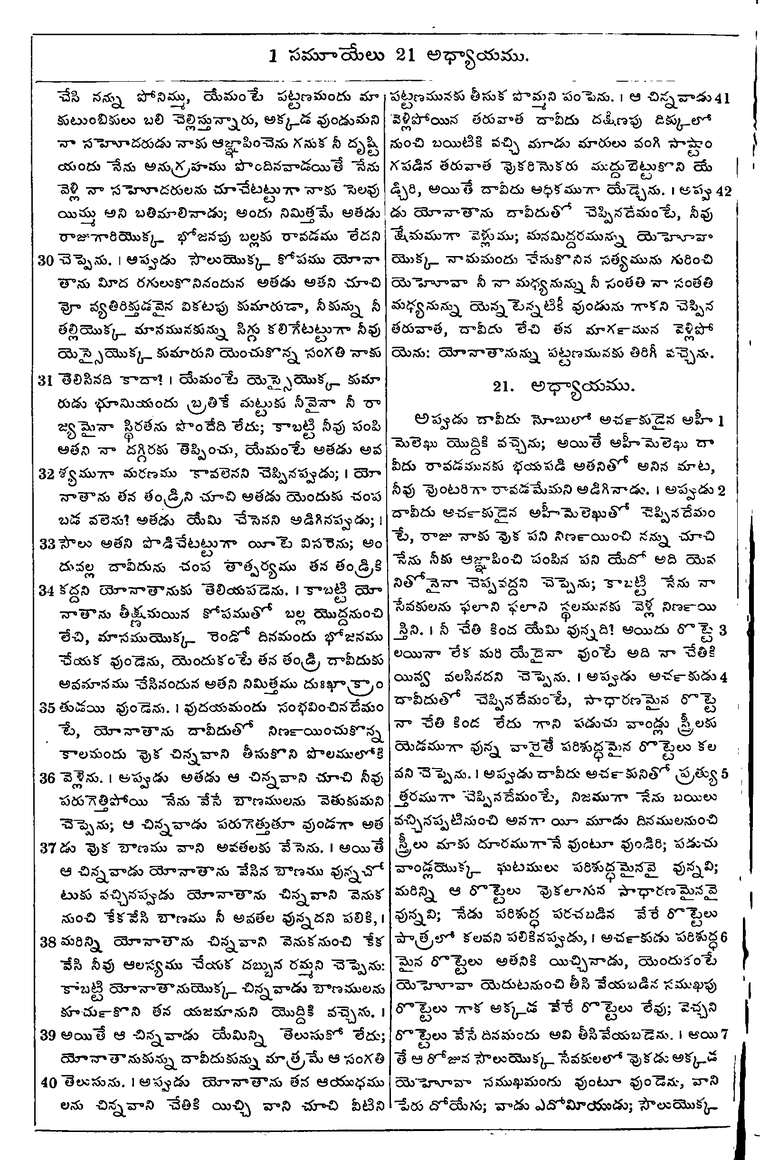 1 సమూయేలు 21 అధ్యాయము.
చేసి నన్ను పోనిమ్ము, యేమంటే పట్టణమందు మా
కుటుంబికులు బలి చెల్లిస్తున్నారు, అక్కడ వుండుమని
నా సహోదరుడు నాకు ఆజ్ఞాపించెను గనుక నీ దృష్టి
యందు నేను అనుగ్రహము పొందినవాడయితే నేను
వెళ్లి నా సహోదరులను చూచేటట్టుగా నాకు సెలవు
యిమ్ము అని బతిమాలినాడు; అందు నిమిత్తమే అతడు
రాజుగారియొక్క భోజనపు బల్లకు రావడము లేదని
30 చెప్పెను. । అప్పుడు సౌలుయొక్క కోపము యోనా
తాను మీద రగులుకొనినందున అతడు అతని చూచి
వోా వ్యతిరిక్తుడవైన వికటపు కుమారుడా, నీకున్ను నీ
తల్లియొక్క మానమునకున్ను సిగ్గు కలిగేటట్టుగా నీవు
యెస్సైయొక్క కుమారుని యెంచుకొన్న సంగతి నాకు
31 తెలిసినది కాదా? । యేమంటే యెస్సైయొక్క కుమా
రుడు భూమియందు బ్రతికే మట్టుకు నీవైనా నీ రా
జ్యమైనా స్థిరతను పొందేది లేదు; కాబట్టి నీవు పంపి
అతని నా దగ్గిరకు తెప్పించు, యేమంటే అతడు అవ
32 శ్యముగా మరణము కావలెనని చెప్పినప్పుడు; । యో
నాతాను తన తండ్రిని చూచి అతడు యెందుకు చంప
బడ వలెను? అతడు యేమి చేసెనని అడిగినప్పుడు; ।
33 సౌలు అతని పొడిచేటట్టుగా యీటె విసరెను; అం
దువల్ల దావీదును చంప తాత్పర్యము తన తండ్రికి
34 కద్దని యోనాతానుకు తెలియపడెను. । కాబట్టి యో
నాతాను తీక్ష్ణమయిన కోపముతో బల్ల యొద్దనుంచి
లేచి, మాసముయొక్క రెండో దినమందు భోజనము
చేయక వుండెను, యెందుకంటే తన తండ్రి దావీదుకు
అవమానము చేసినందున అతని నిమిత్తము దుఃఖాక్రాం
35 తుడయి వుండెను. । వుదయమందు సంభవించినదేమం
టే, యోనాతాను దావీదుతో నిర్ణయించుకొన్న
కాలమందు వుక చిన్నవాని తీసుకొని పొలములోకి
36 వెళ్లెను. । అప్పుడు అతడు ఆ చిన్నవాని చూచి నీవు
పరుగెత్తిపోయి నేను వేసే బాణములను వెతుకుమని
చెప్పెను; ఆ చిన్నవాడు పరుగెత్తుతూ వుండగా అత
37 డు వుక బాణము వాని అవతలకు వేసెను. । అయితే
ఆ చిన్నవాడు యోనాతాను వేసిన బాణము వున్నచో
టుకు వచ్చినప్పుడు యోనాతాను చిన్నవాని వెనుక
నుంచి కేకవేసి బాణము నీ అవతల వున్నదని పలికి, ।
38 మరిన్ని యోనాతాను చిన్నవాని వెనుకనుంచి కేక
వేసి నీవు ఆలస్యము చేయక దబ్బున రమ్మని చెప్పెను:
కాబట్టి యోనాతానుయొక్క చిన్నవాడు బాణములను
కూర్చుకొని తన యజమానుని యొద్దికి వచ్చెను. ।
39 అయితే ఆ చిన్నవాడు యేమిన్ని తెలుసుకో లేదు;
యోనాతానుకున్ను దావీదుకున్ను మాత్రమే ఆ సంగతి
40 తెలుసును. । అప్పుడు యోనాతాను తన ఆయుధము
లను చిన్నవాని చేతికి యిచ్చి వాని చూచి వీటిని
పట్టణమునకు తీసుక పొమ్మని పంపెను. । ఆ చిన్నవాడు 41
వెళ్లిపోయిన తరువాత దావీదు దక్షిణపు దిక్కులో
నుంచి బయిటికి వచ్చి మూడు మారులు వంగి సాష్టాం
గపడిన తరువాత వుకరినొకరు ముద్దుబెట్టుకొని యే
డ్చిరి, అయితే దావీదు అధికముగా యేడ్చెను. । అప్పు 42
డు యోనాతాను దావీదుతో చెప్పినదేమంటే, నీవు
క్షేమముగా వెళ్లుము; మనమిద్దరమున్ను యెహోవా
యొక్క నామమందు చేసుకొనిన సత్యమును గురించి
యెహోవా నీ నా మధ్యనున్ను నీ సంతతి నా సంతతి
మధ్యనున్ను యెన్నటెన్నటికీ వుండును గాకని చెప్పిన
తరువాత, దావీదు లేచి తన మార్గమున వెళ్లిపో
యెను: యోనాతానున్ను పట్టణమునకు తిరిగీ వచ్చెను.
21. అధ్యాయము.
అప్పుడు దావీదు నోబులో అర్చకుడైన అహీ 1
మెలెఖు యొద్దికి వచ్చెను; అయితే అహీమెలెఖు దా
వీదు రావడమునకు భయపడి అతనితో అనిన మాట,
నీవు వుంటరిగా రావడమేమని అడిగినాడు. । అప్పుడు 2
దావీదు అర్చకుడైన అహీమెలెఖుతో చెప్పినదేమం
టే, రాజు నాకు వుక పని నిర్ణయించి నన్ను చూచి
నేను నీకు ఆజ్ఞాపించి పంపిన పని యేదో అది యెవ
నితోనైనా చెప్పవద్దని చెప్పెను; కాబట్టి నేను నా
సేవకులను ఫలాని ఫలాని స్థలమునకు వెళ్ల నిర్ణయి
స్తిని. । నీ చేతి కింద యేమి వున్నది? అయిదు రొట్టె 3
లయినా లేక మరి యేదైనా వుంటే అది నా చేతికి
యివ్వ వలసినదని చెప్పెను. । అప్పుడు అర్చకుడు 4
దావీదుతో చెప్పినదేమంటే, సాధారణమైన రొట్టె
నా చేతి కింద లేదు గాని పడుచు వాండ్లు స్త్రీలకు
యెడముగా వున్న వారైతే పరిశుద్ధమైన రొట్టెలు కల
వని చెప్పెను. । అప్పుడు దావీదు అర్చకునితో ప్రత్యు 5
త్తరముగా చెప్పినదేమంటే, నిజముగా నేను బయలు
వచ్చినప్పటినుంచి అనగా యీ మూడు దినములనుంచి
స్త్రీలు మాకు దూరముగానే వుంటూ వుండిరి; పడుచు
వాండ్లయొక్క ఘటములు పరిశుద్ధమైనవై వున్నవి;
మరిన్ని ఆ రొట్టెలు వుకలాగున సాధారణమైనవై
వున్నవి; నేడు పరిశుద్ధ పరచబడిన వేరే రొట్టెలు
పాత్రలో కలవని పలికినప్పుడు, । అర్చకుడు పరిశుద్ధ 6
మైన రొట్టెలు అతనికి యిచ్చినాడు, యెందుకంటే
యెహోవా యెదుటనుంచి తీసి వేయబడిన సముఖపు
రొట్టెలు గాక అక్కడ వేరే రొట్టెలు లేవు; వెచ్చని
రొట్టెలు వేసే దినమందు అవి తీసివేయబడెను. । అయి 7
తే ఆ రోజున సౌలుయొక్క సేవకులలో వుకడు అక్కడ
యెహోవా సముఖమందు వుంటూ వుండెను, వాని
పేరు దోయేగు; వాడు ఎదోమీయుడు; సౌలుయొక్క